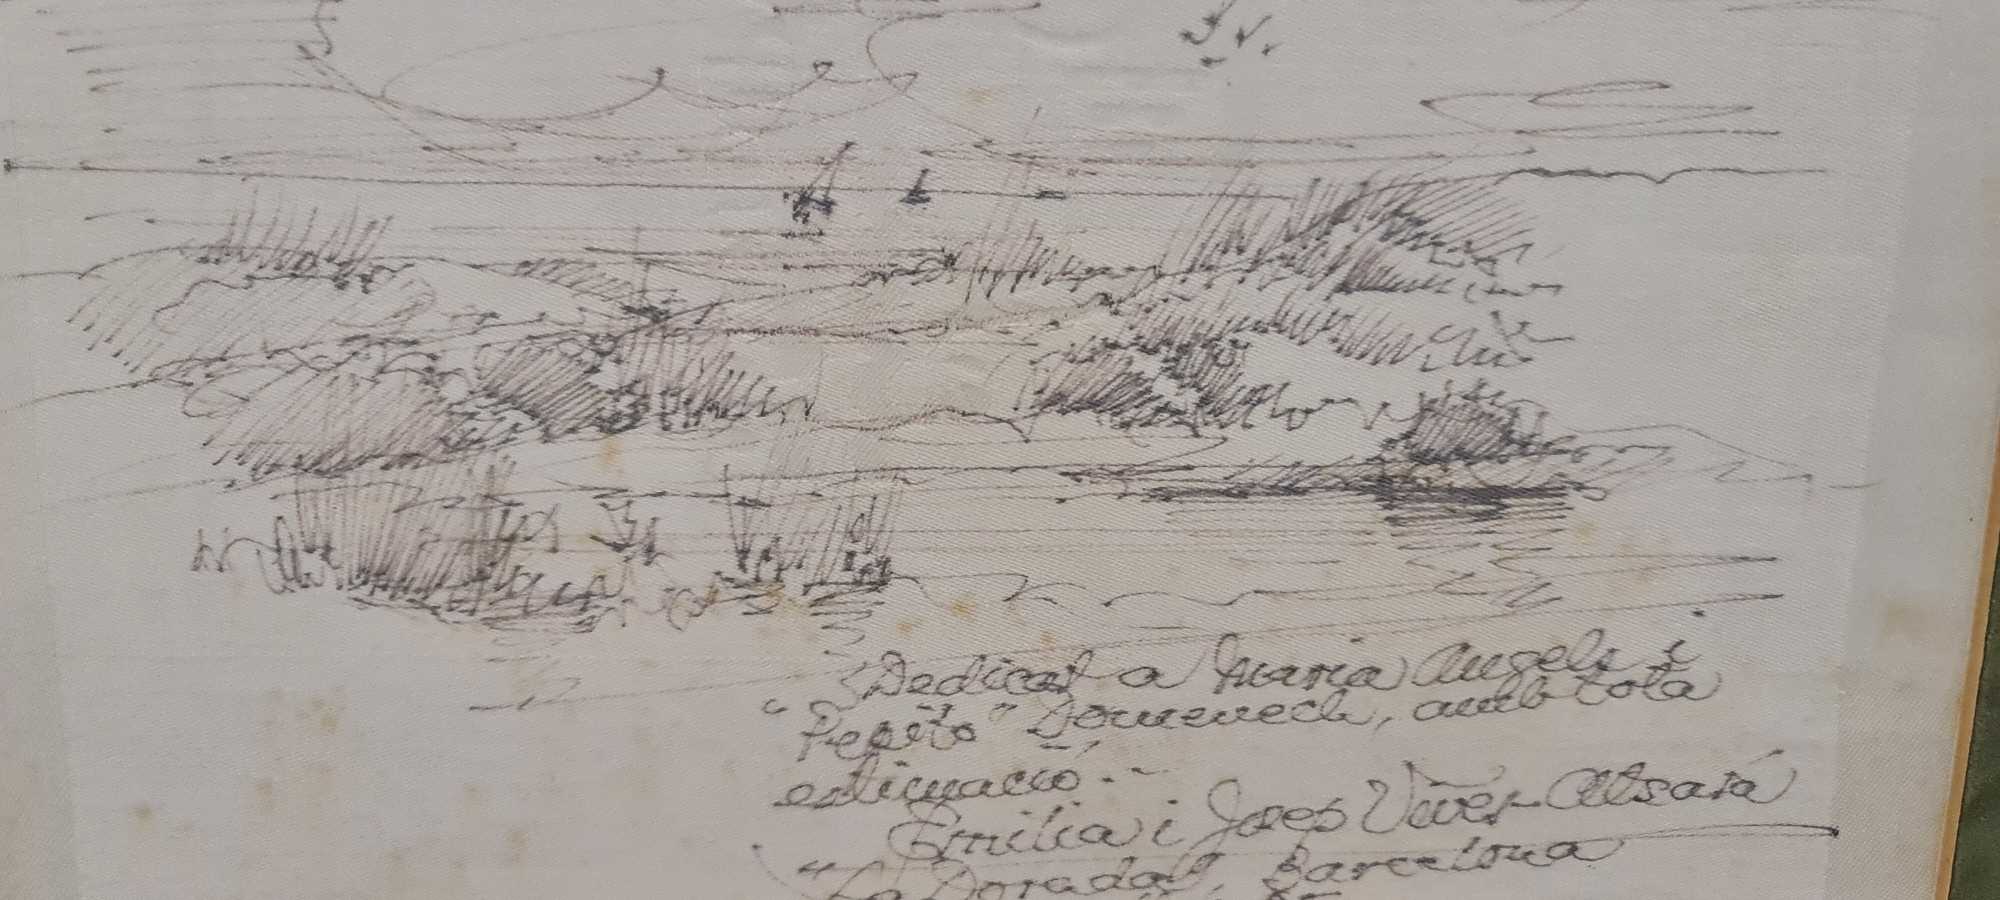 J.V.
Dedicat a Maria Àngels i
"Pepito" Domenech, amb tota
estimació.-
Emilia i Josep Viver Alsará
"La Dorada", Barcelona